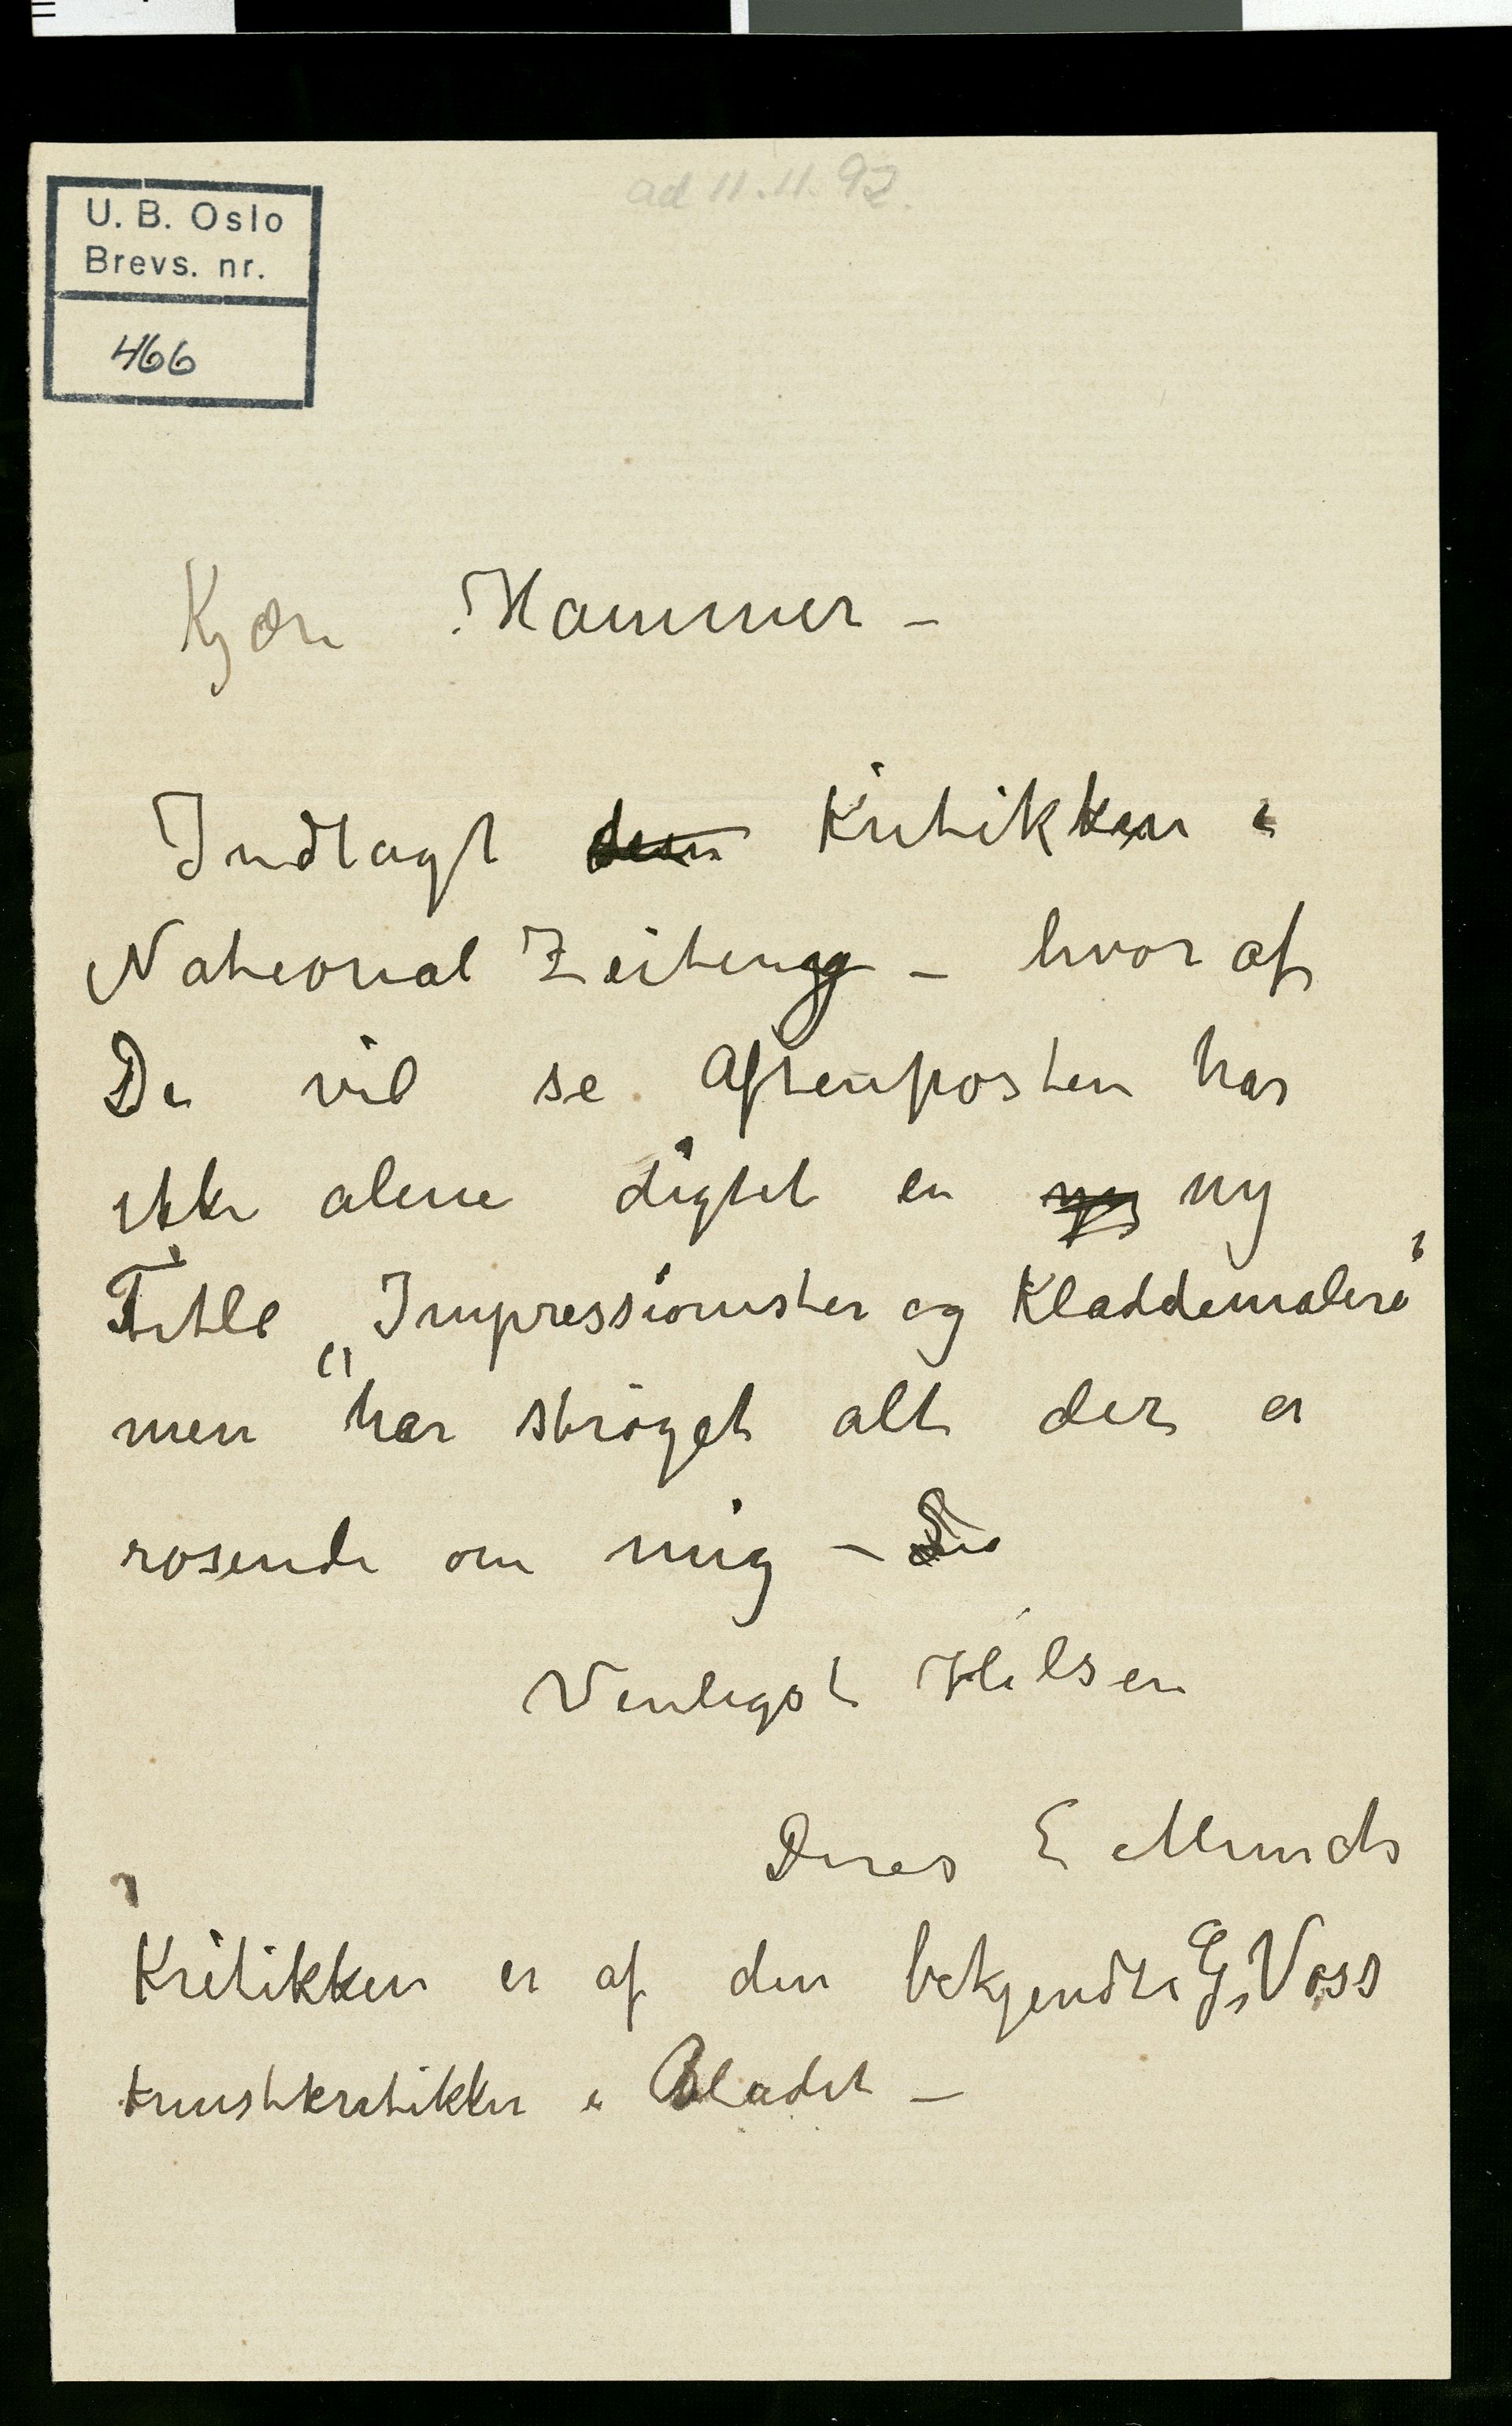 ad 11.11.92.
U. B. Oslo
Brevs. nr.
466
Kjære Hammer –
Indlagt Kritikken i
National Zeitung – hvoraf
De vil se Aftenposten har
ikke alene digtet en ny
Titlel „Impressionister og Kladdemalere"
men har strøget alt der er
rosende om mig –
Venligst Hilsen
Deres E Munch
Kritikken er af den bekjendte G. Voss
kunstkritikker i Bladet –